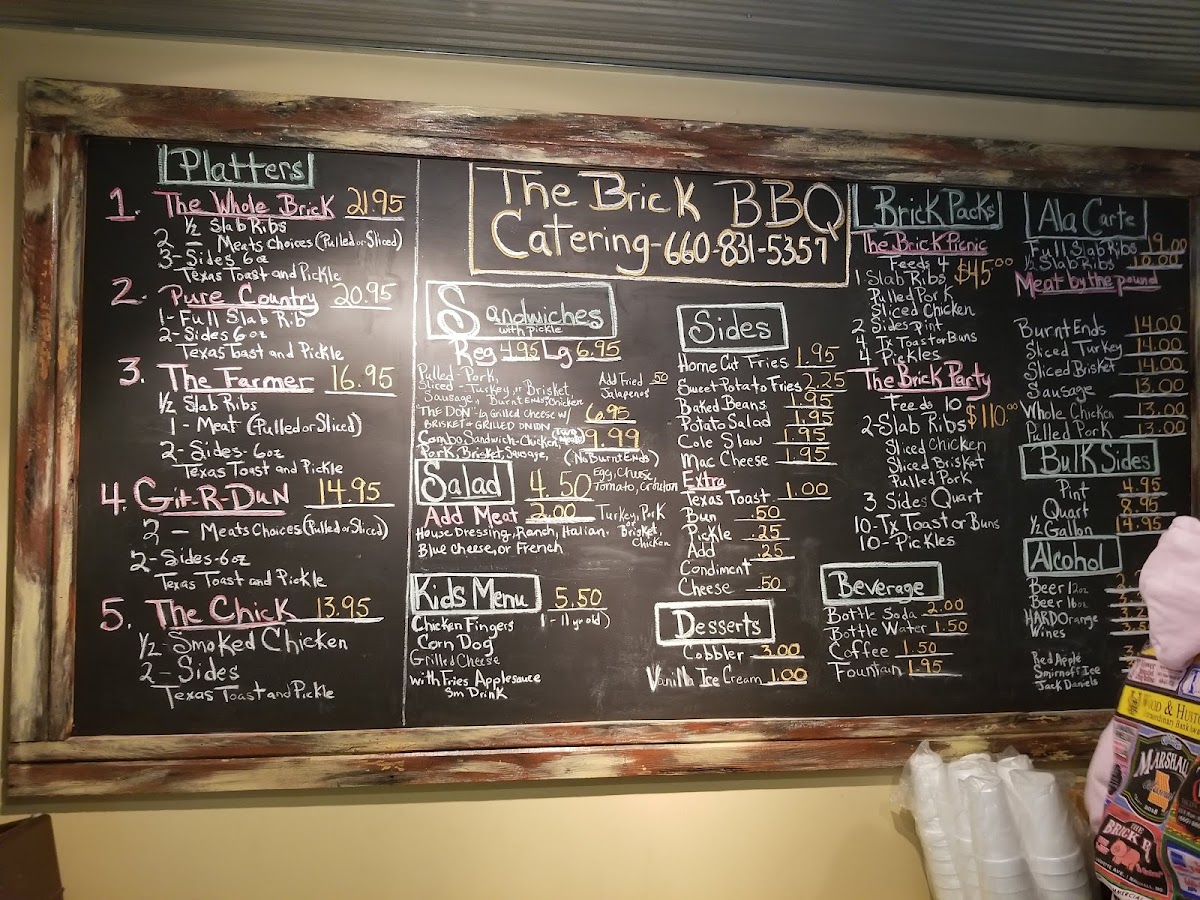 Platters
1. The Whole Brick 21.95
1/2 Slab Ribs
2 — Meats Choices (Pulled or Sliced)
3- Sides 6oz
Texas Toast and Pickle
2. Pure Country 20.95
1- Full Slab Rib
2- Sides 6oz
Texas Toast and Pickle
3. The Farmer 16.95
1/2 Slab Ribs
1 - Meat (Pulled or Sliced)
2- Sides- 6oz
Texas Toast and Pickle
4. Git-R-Dun 14.95
2 — Meats Choices (Pulled or Sliced)
2- Sides- 6oz
Texas Toast and Pickle
5. The Chick 13.95
1/2 Smoked Chicken
2 - Sides
Texas Toast and Pickle
The Brick BBQ
Catering- 660-831-5357
Sandwiches
with pickle
Reg 4.95 Lg 6.95
Pulled - Pork,
Sliced - Turkey, or Brisket,
Sausage, Burnt Ends, Chicken
Add Fried .50
Jalapenos
"THE DON" - Lg Grilled Cheese w/ 6.95
BRISKET & GRILLED ONION
Combo Sandwich - Chicken, 9.99
Pork, Brisket, Sausage, (No Burnt Ends)
Salad 4.50
Egg, Cheese,
Tomato, Crouton
Add Meat 2.00 Turkey, Pork
or Brisket,
Chicken
House Dressing, Ranch, Italian,
Blue Cheese, or French
Kids Menu 5.50
(1-11 yr old)
Chicken Fingers
Corn Dog
Grilled Cheese
with Fries Applesauce
Sm Drink
Sides
Home Cut Fries 1.95
Sweet Potato Fries 2.25
Baked Beans 1.95
Potato Salad 1.95
Cole Slaw 1.95
Mac Cheese 1.95
Extra
Texas Toast 1.00
Bun .50
Pickle .25
Add .25
Condiment
Cheese .50
Desserts
Cobbler 3.00
Vanilla Ice Cream 1.00
Brick Packs
The Brick Picnic
Feeds 4 $45.00
1 Slab Ribs
Pulled Pork
Sliced Chicken
2 Sides Pint
4 Tx Toast or Buns
4 Pickles
The Brick Party
Feeds 10
2- Slab Ribs $110.00
Sliced Chicken
Sliced Brisket
Pulled Pork
3 Sides Quart
10- Tx Toast or Buns
10- Pickles
Beverage
Bottle Soda 2.00
Bottle Water 1.50
Coffee 1.50
Fountain 1.95
Ala Carte
Full Slab Ribs 19.00
1/2 Slab Ribs 10.00
Meat by the pound
Burnt Ends 14.00
Sliced Turkey 14.00
Sliced Brisket 14.00
Sausage 13.00
Whole Chicken 13.00
Pulled Pork 13.00
Bulk Sides
Pint 4.95
Quart 8.95
1/2 Gallon 14.95
Alcohol
Beer 12oz
Beer 16oz
HARD Orange
Wines
Red Apple
Smirnoff Ice
Jack Daniels
MARSHALL
THE
BRICK